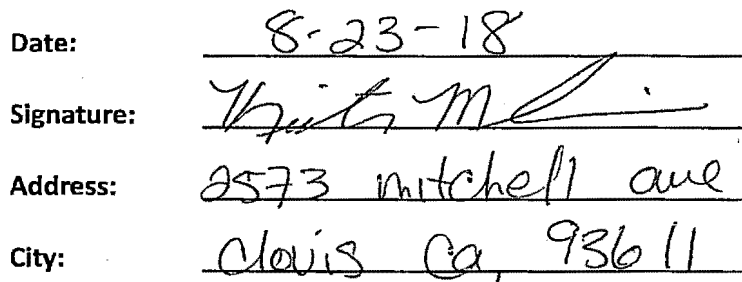 Date: 8-23-18
Signature:
Address: 2573 mitchell ave
City: Clovis Ca, 93611